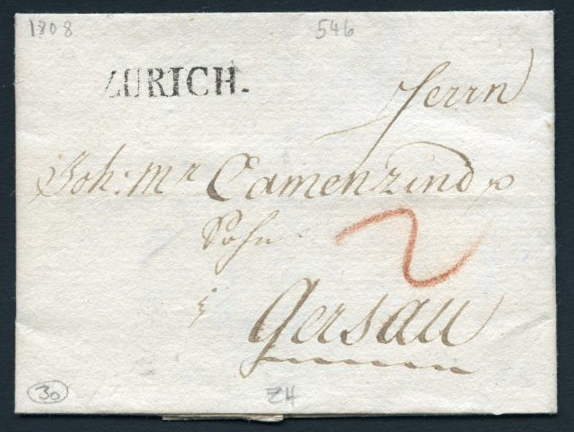 1808 546
ZURICH.
Herrn
Joh: Mr Camenzind
Sohn
2
Gersau
30 ZH